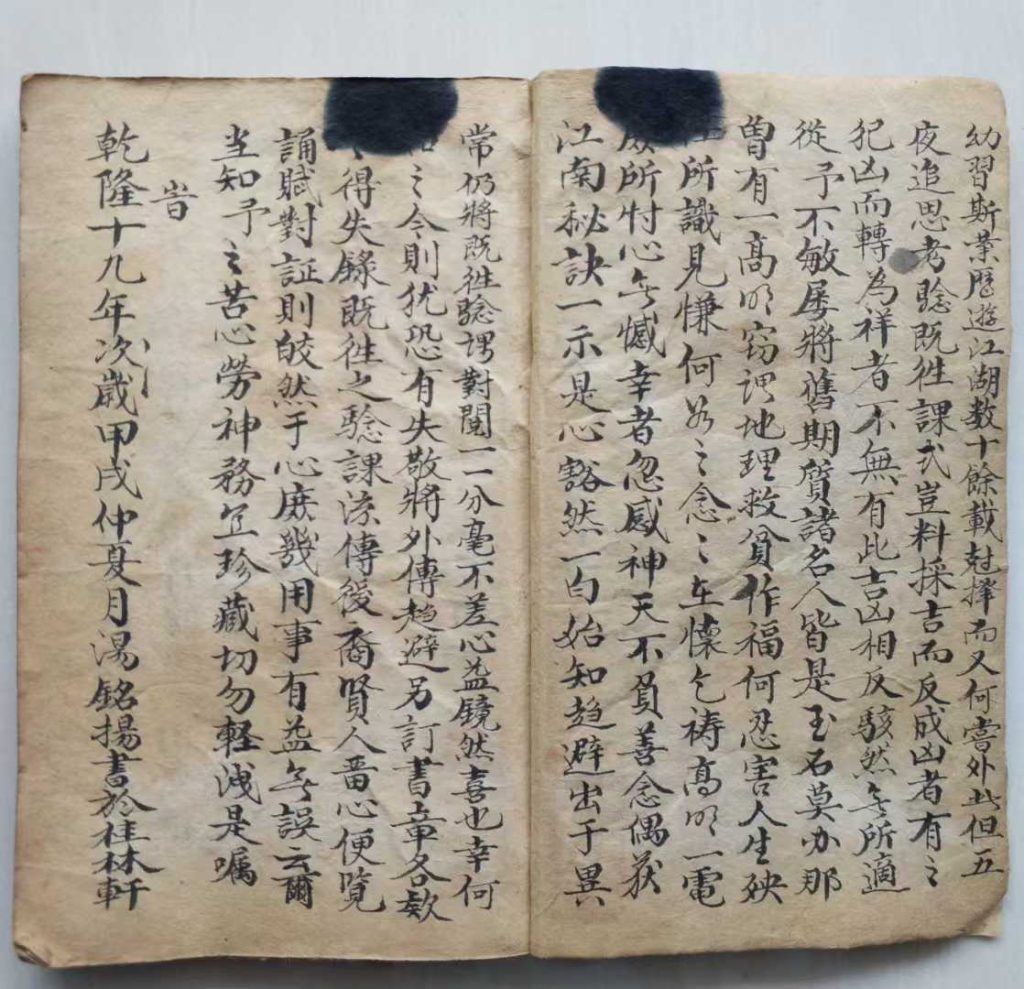 幼習斯業歷遊江湖数十餘載尅擇而又何嘗外此但五
夜追思考驗既徃課式豈料採吉而反成凶者有之
犯凶而轉為祥者不無有此吉凶相反駭然无所適
從予不敏屡將舊期質諸名人皆是玉石莫办那
曽有一高明窃謂地理救貧作福何忍害人生殃
所識見慊何如之念之在懷乞祷高明一電
所忖心无憾幸者忽感神天不負善念偶获
江南秘訣一示是心豁然一白始知趋避出于異
常仍將既徃驗課對閱一一分毫不差心益鏡然喜也幸何
之令則犹恐有失敬將外傳趋避另訂書章各欵
得失錄既徃之驗課流傳後裔賢人畱心便覧
誦賦對証則皎然于心庶幾用事有益无誤云爾
当知予之苦心勞神務宜珍藏切勿軽洩是嘱
旹
乾隆十九年次歲甲戌仲夏月湯銘揚書於桂林軒